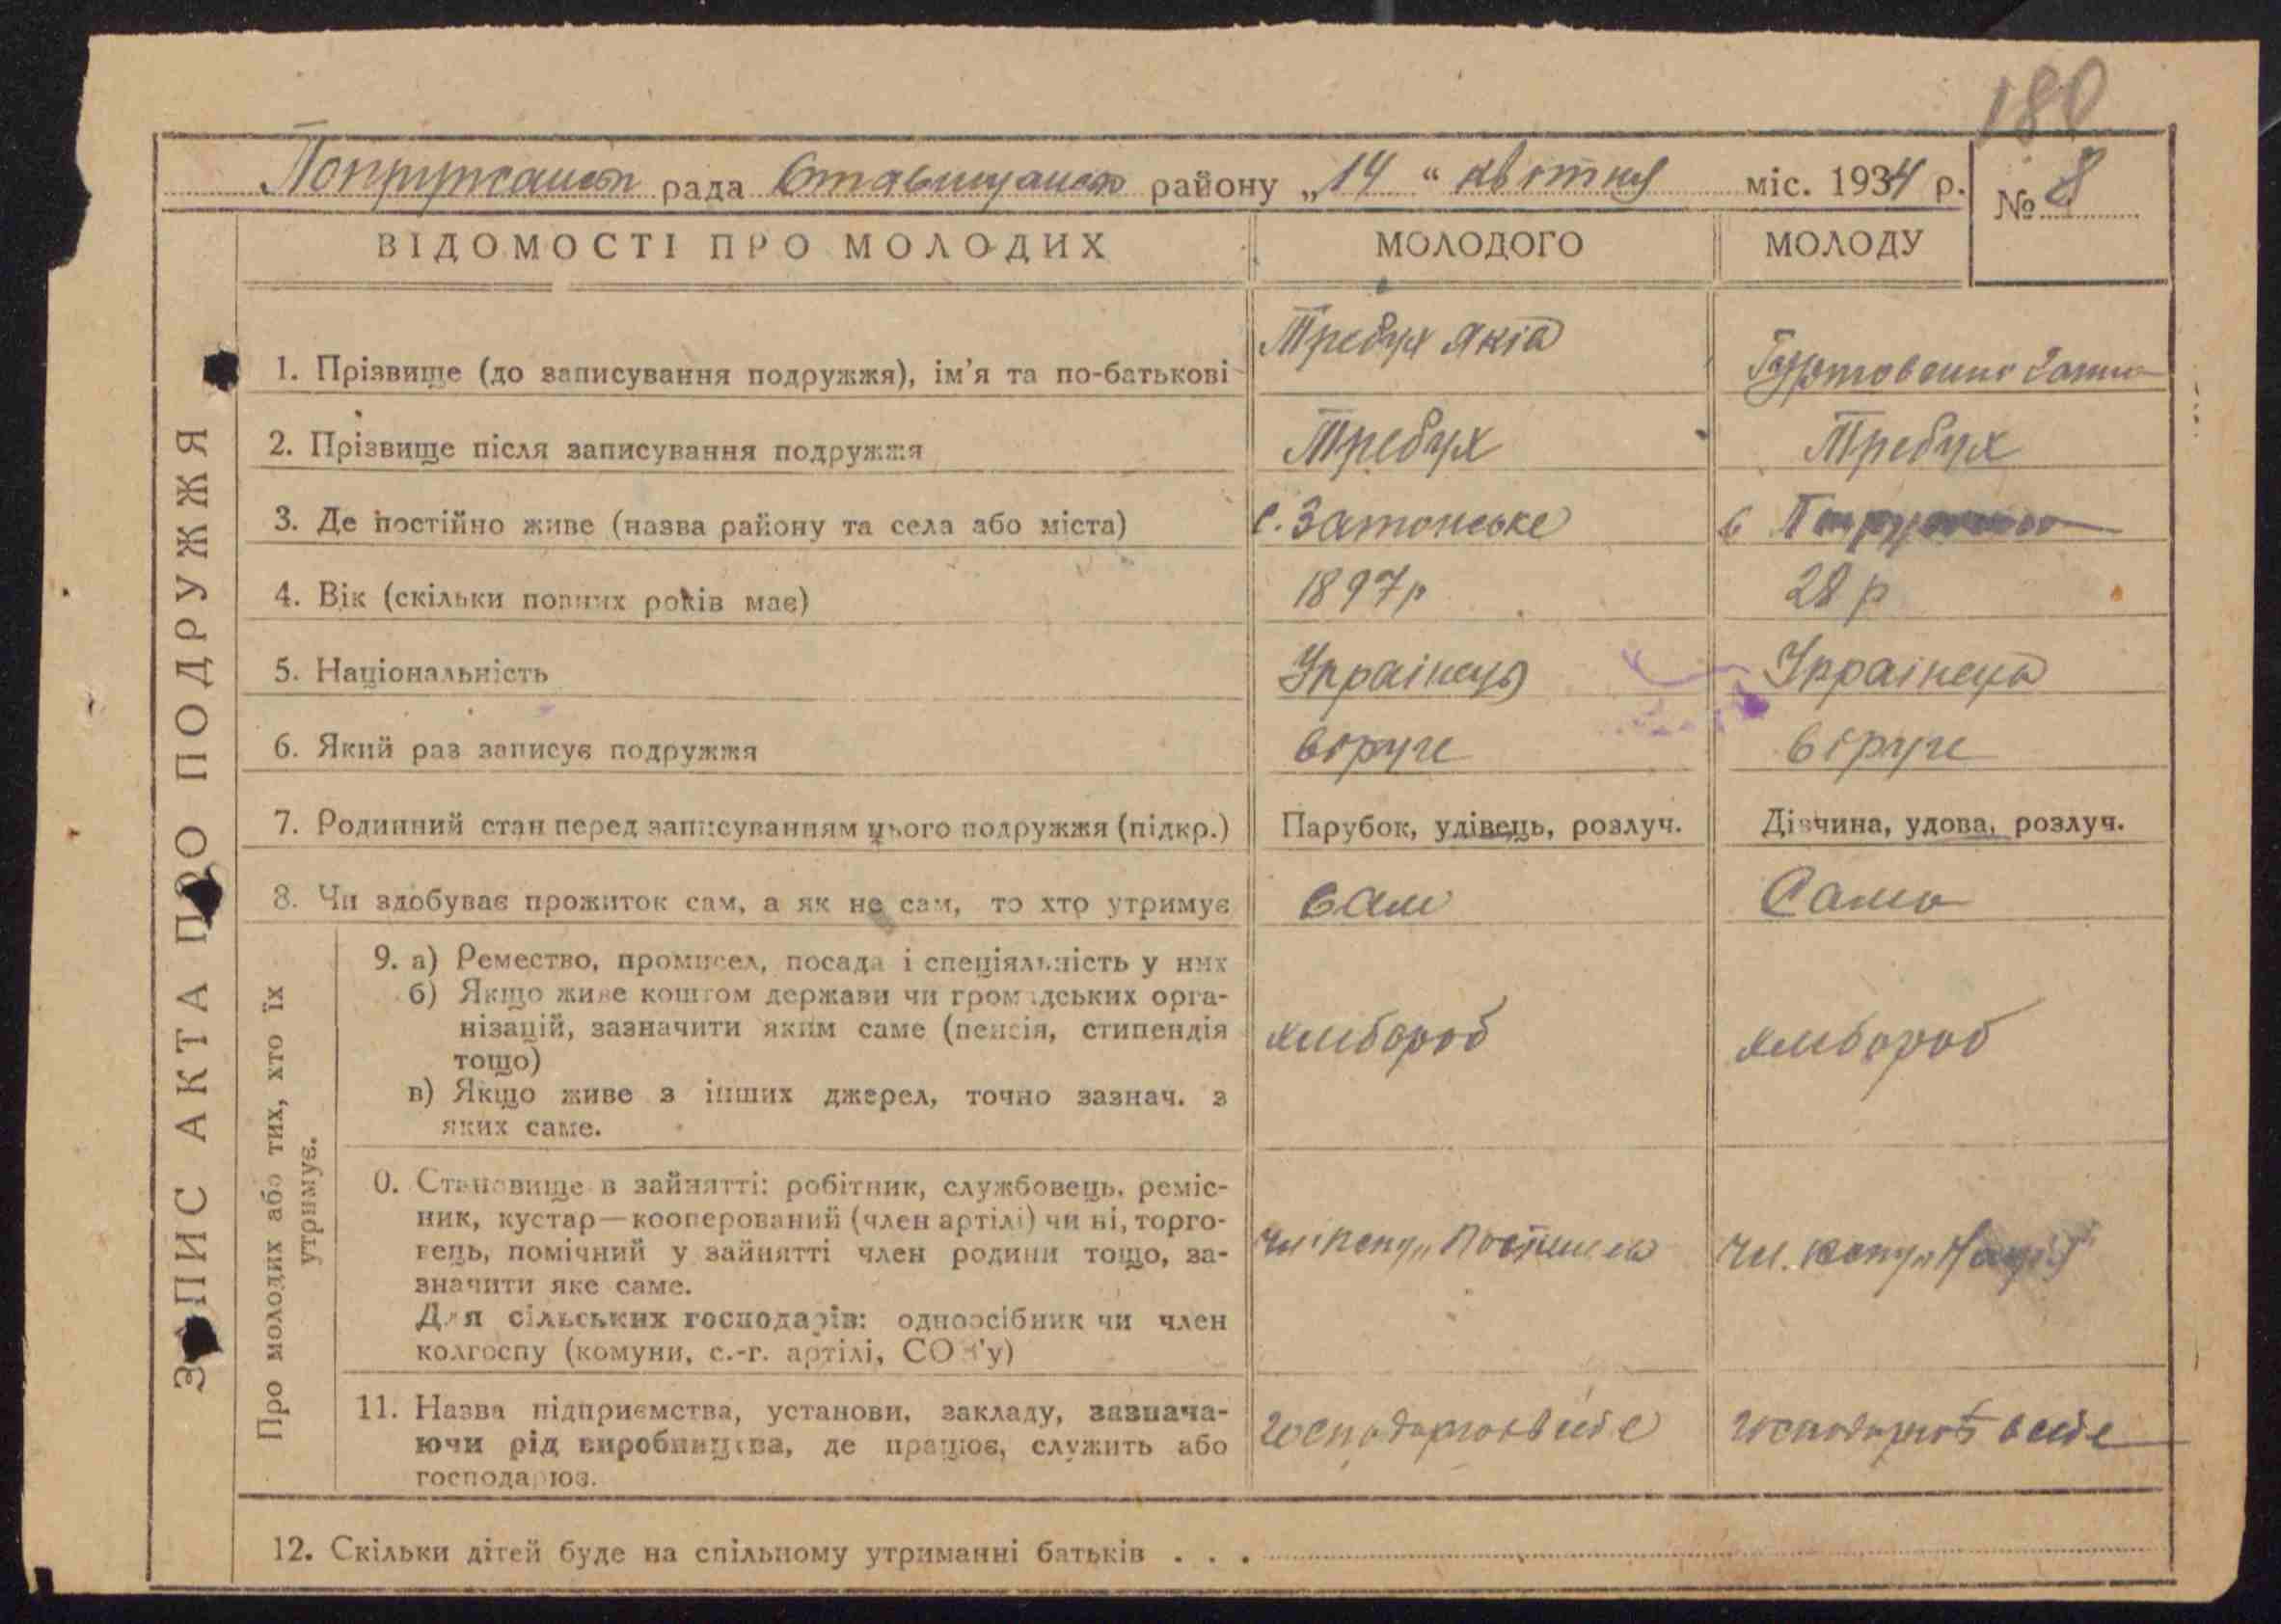 180
Попружанск рада Ставищанск району „14“ квітня міс. 1934 р.
№ 8
ВІДОМОСТІ ПРО МОЛОДИХ МОЛОДОГО МОЛОДУ
ЗАПИС АКТА ПРО ПОДРУЖЖЯ
1. Прізвище (до записування подружжя), ім’я та по-батькові Требух Яків Ганна
2. Прізвище після записування подружжя Требух Требух
3. Де постійно живе (назва району та села або міста) с. Затонське с
4. Вік (скільки повних років має) 1897р 28 р
5. Національність Українець Українець
6. Який раз записує подружжя вдруге вдруге
7. Родинний стан перед записуванням цього подружжя (підкр.) Парубок, удівець, розлуч. Дівчина, удова, розлуч.
8. Чи здобуває прожиток сам, а як не сам, то хто утримує сам Сама
Про молодих або тих, хто їх
утримує.
9. а) Ремество, промисел, посада і спеціяльність у них
б) Якщо живе коштом держави чи громадських орга-
нізацій, зазначити яким саме (пенсія, стипендія
тощо)
хлібороб хлібороб
в) Якщо живе з інших джерел, точно зазнач. з
яких саме.
0. Становище в зайнятті: робітник, службовець, реміс-
ник, кустар—кооперований (член артілі) чи ні, торго-
вець, помічний у зайнятті член родини тощо, за-
значити яке саме.
Для сільських господарів: одноосібник чи член
колгоспу (комуни, с.-г. артілі, СОЗ’у)
11. Назва підприємства, установи, закладу, зазнача-
ючи рід виробництва, де працює, служить або
господарює.
12. Скільки дітей буде на спільному утриманні батьків . . .